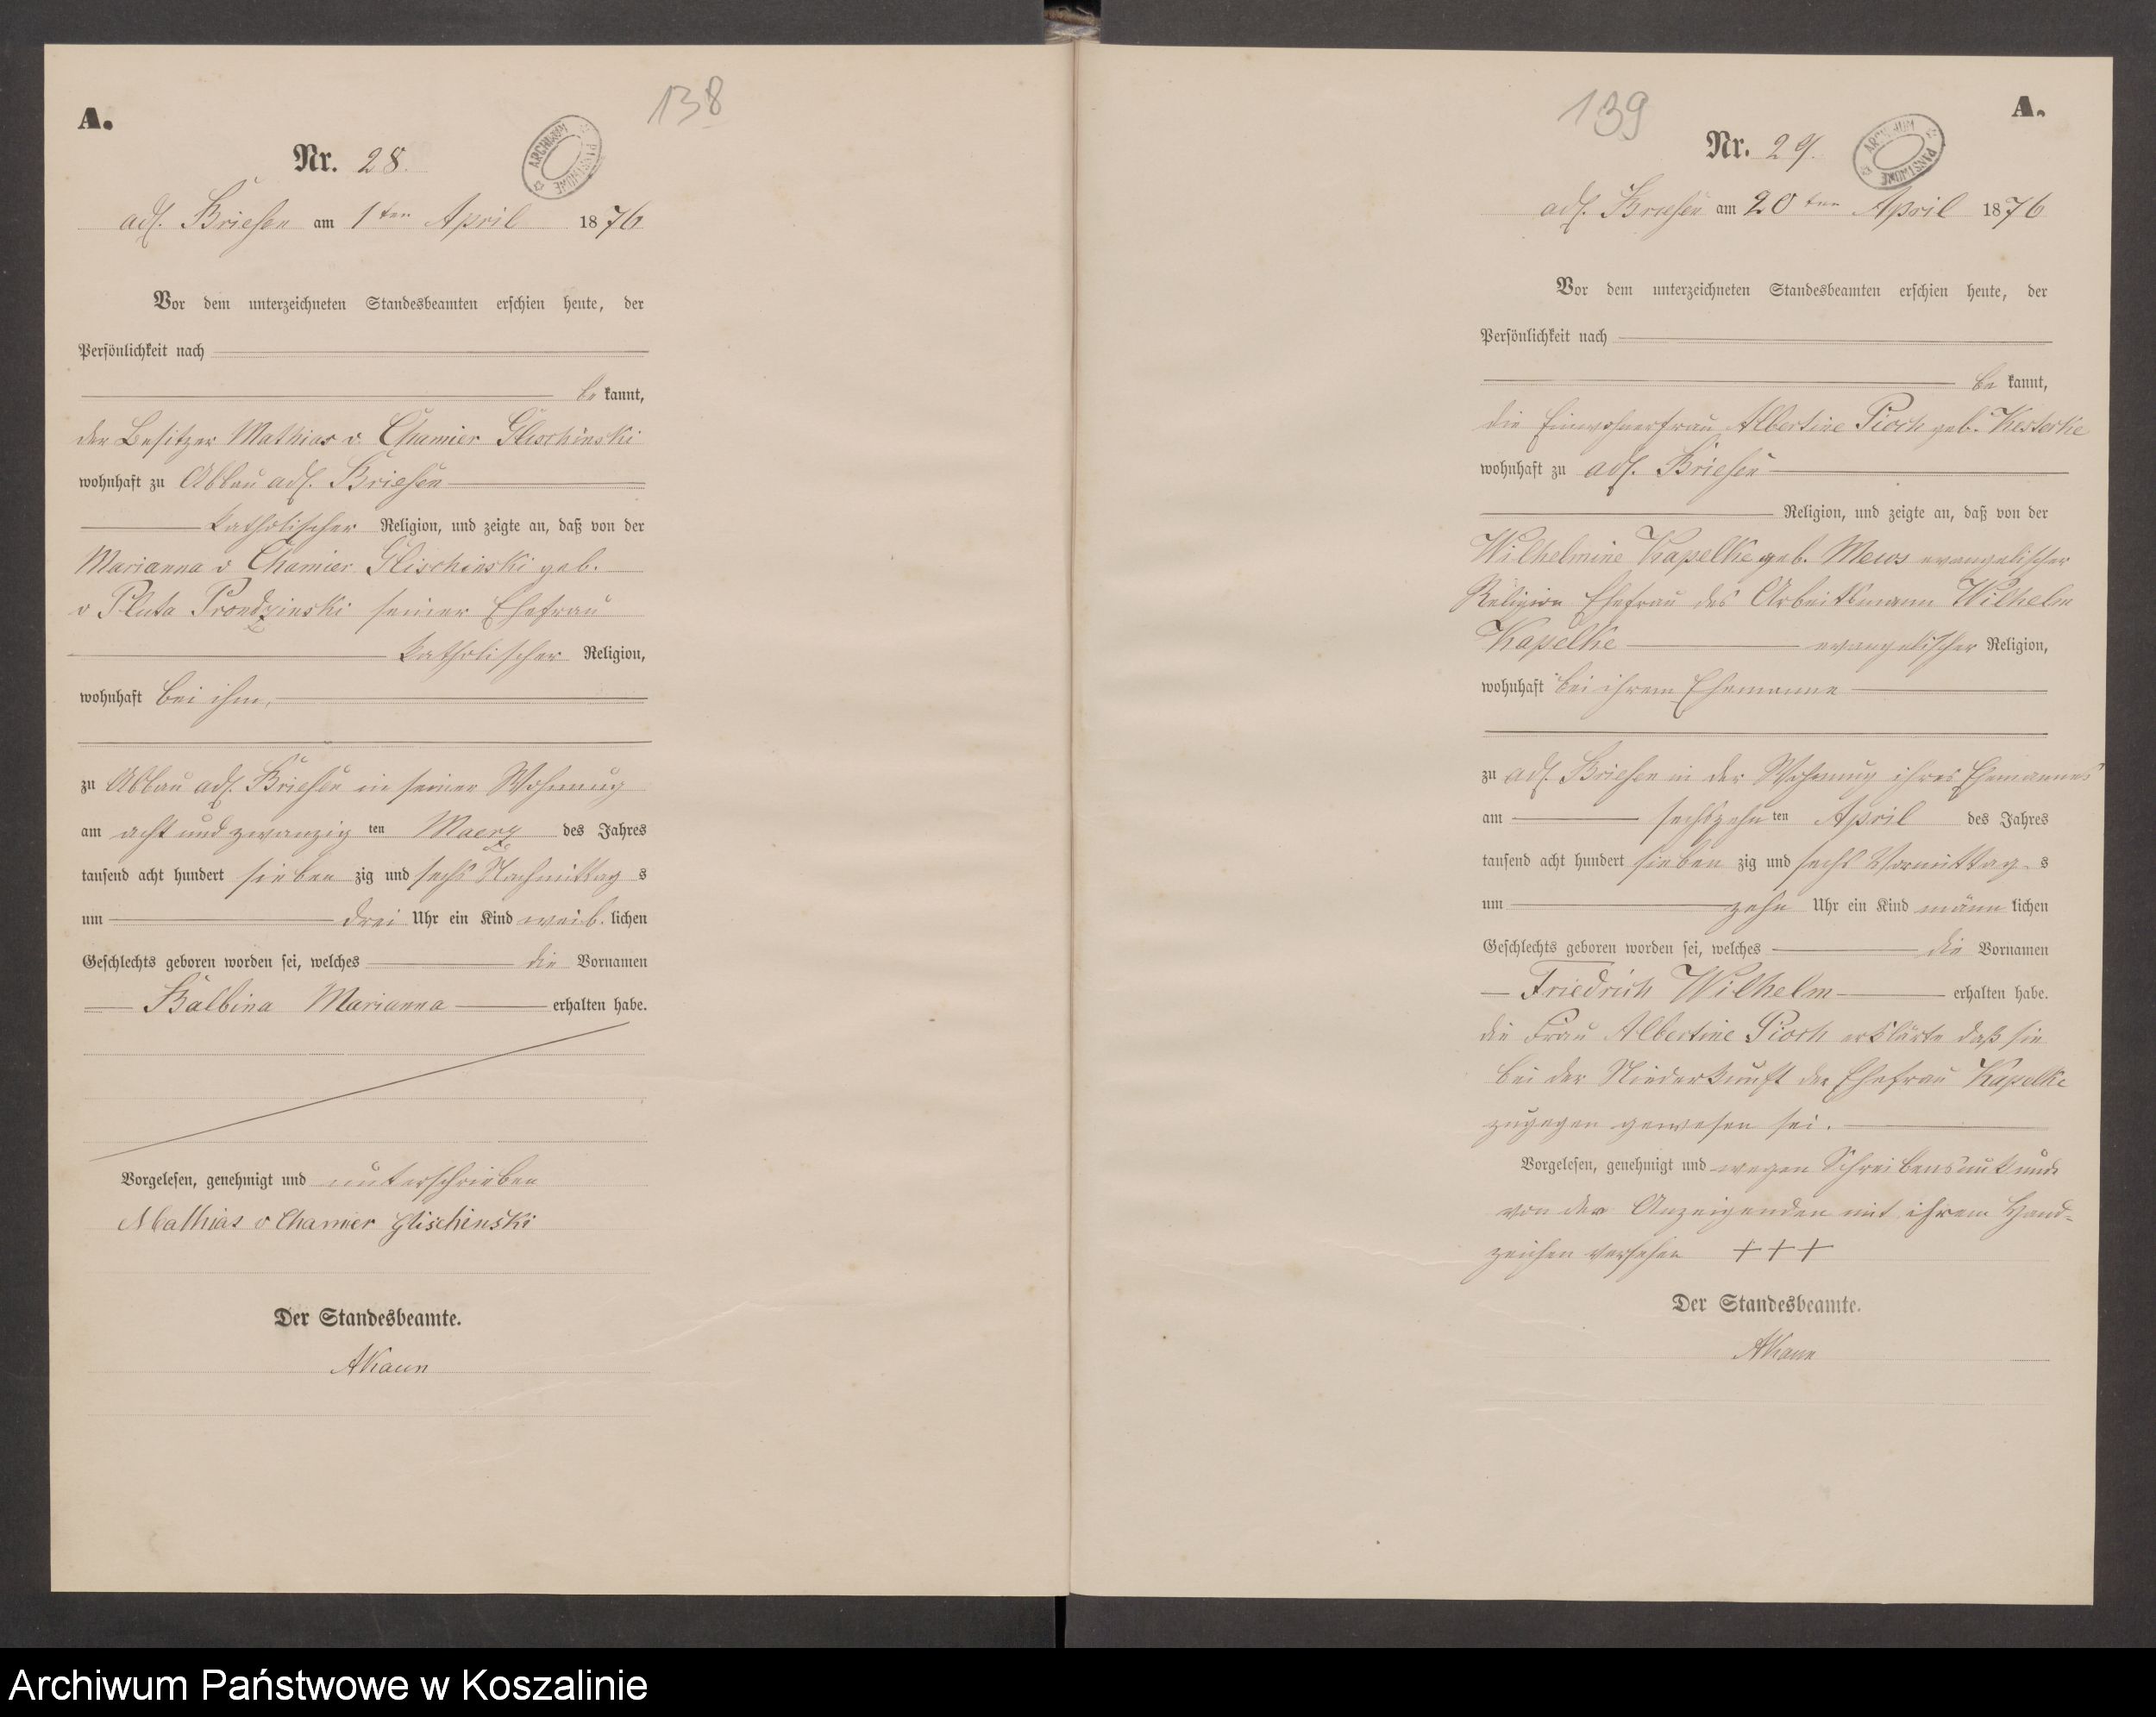 138
A.
Nr. 28.
ARCHIWUM PAŃSTWOWE
adl. Briesen am 1ten April 1876
Vor dem unterzeichneten Standesbeamten erschien heute, der
Persönlichkeit nach
be kannt,
der Besitzer Mathias v. Chamier Glischinski
wohnhaft zu Abbau adl. Briesen
katholischer Religion, und zeigte an, daß von der
Marianna v Chamier Glischinski geb.
v Pluta Prondzinski seiner Ehefrau
katholischer Religion,
wohnhaft bei ihm,
zu Abbau adl. Briesen in seiner Wohnung
am acht und zwanzig ten Maerz des Jahres
tausend acht hundert sieben zig und sechs Nachmittag s
um drei Uhr ein Kind weib. lichen
Geschlechts geboren worden sei, welches die Vornamen
Balbina Marianna erhalten habe.
Vorgelesen, genehmigt und unterschrieben
Mathias v Chamier Glischinski
Der Standesbeamte.
AKaun
139
A.
Nr. 29.
ARCHIWUM PAŃSTWOWE
adl. Briesen am 20ten April 1876
Vor dem unterzeichneten Standesbeamten erschien heute, der
Persönlichkeit nach
be kannt,
die Einwohnerfrau Albertine Pioch geb. Kesterke
wohnhaft zu adl. Briesen
Religion, und zeigte an, daß von der
Wilhelmine Kapelke geb. Mews evangelischer
Religion Ehefrau des Arbeitsmann Wilhelm
Kapelke evangelischer Religion,
wohnhaft bei ihrem Ehemanne
zu adl. Briesen in der Wohnung ihres Ehemannes
am sechszehn ten April des Jahres
tausend acht hundert sieben zig und sechs Vormittag s
um zehn Uhr ein Kind männ lichen
Geschlechts geboren worden sei, welches die Vornamen
Friedrich Wilhelm erhalten habe.
die Frau Albertine Pioch erklärte daß sie
bei der Niederkunft der Ehefrau Kapelke
zugegen gewesen sei.
Vorgelesen, genehmigt und wegen Schreibensunkunde
von der Anzeigenden mit ihrem Hand-
zeichen versehen +++
Der Standesbeamte.
AKaun
Archiwum Państwowe w Koszalinie